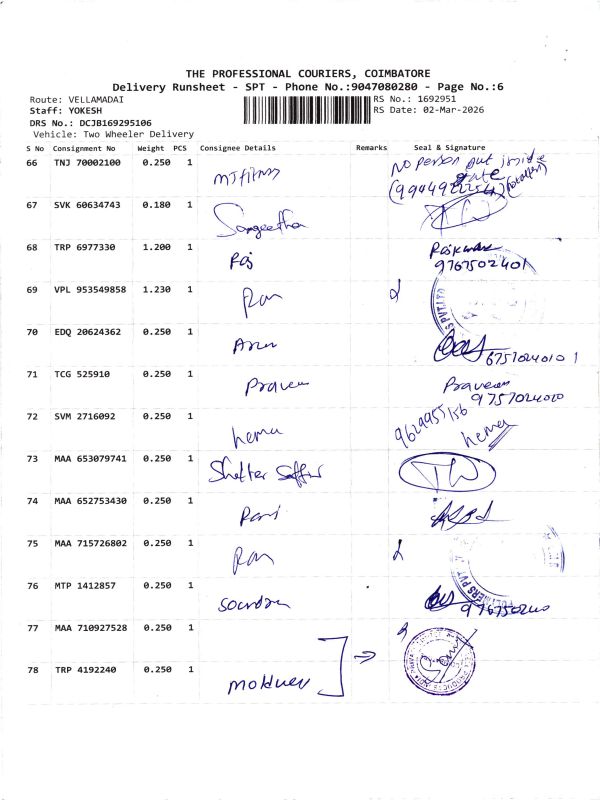 THE PROFESSIONAL COURIERS, COIMBATORE
Delivery Runsheet - SPT - Phone No.:9047080280 - Page No.:6
Route: VELLAMADAI
Staff: YOKESH
DRS No.: DCJB169295106
Vehicle: Two Wheeler Delivery
RS No.: 1692951
RS Date: 02-Mar-2026
S No Consignment No Weight PCS Consignee Details Remarks Seal & Signature
66 TNJ 70002100 0.250 1 No person out inside gate
67 SVK 60634743 0.180 1 Sangeetha
68 TRP 6977330 1.200 1 Raj Rajkumar
9767502401
69 VPL 953549858 1.230 1
70 EDQ 20624362 0.250 1 Arun
71 TCG 525910 0.250 1 Praveen Praveen
9757024020
72 SVM 2716092 0.250 1 hema hema
73 MAA 653079741 0.250 1 Shelter
74 MAA 652753430 0.250 1
75 MAA 715726802 0.250 1
76 MTP 1412857 0.250 1
77 MAA 710927528 0.250 1
78 TRP 4192240 0.250 1